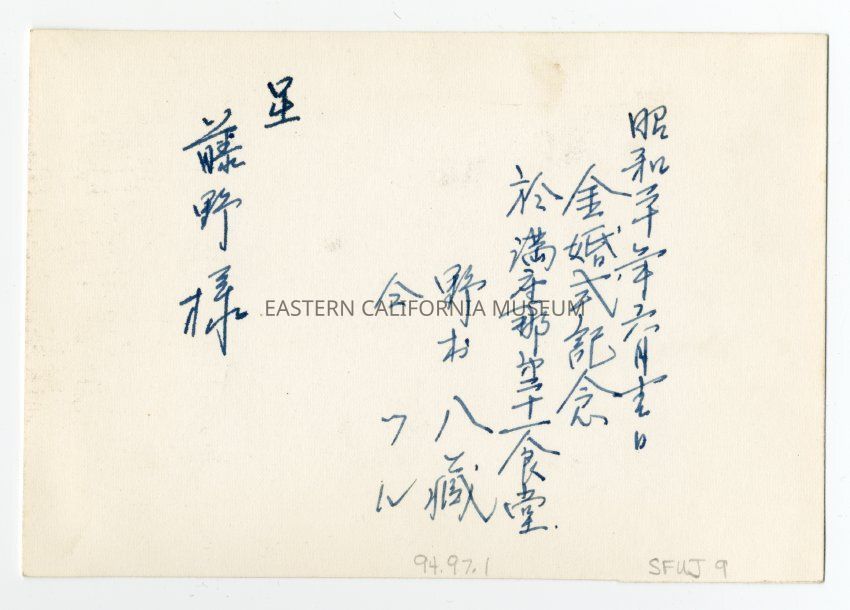 昭和 年六月 日
金婚式記念
於満座那第十一食堂
野村 八藏
仝 ル
呈
藤野様
EASTERN CALIFORNIA MUSEUM
94.97.1
SFUJ 9